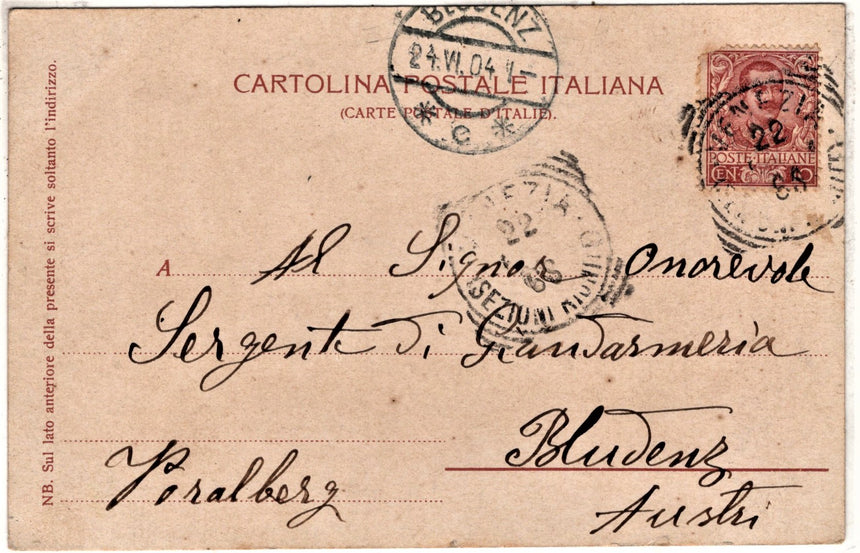 BLUDENZ
24.VI.04
* e *
CARTOLINA POSTALE ITALIANA
(CARTE POSTALE D'ITALIE).
VENEZIA
22
POSTE ITALIANE
CEN 10
VENEZIA
22
SEZIONI RIUNITE
A Al Signor Onorevole
Sergente di Giandarmeria
Bludenz
Voralberg
Austri
NB. Sul lato anteriore della presente si scrive soltanto l'indirizzo.